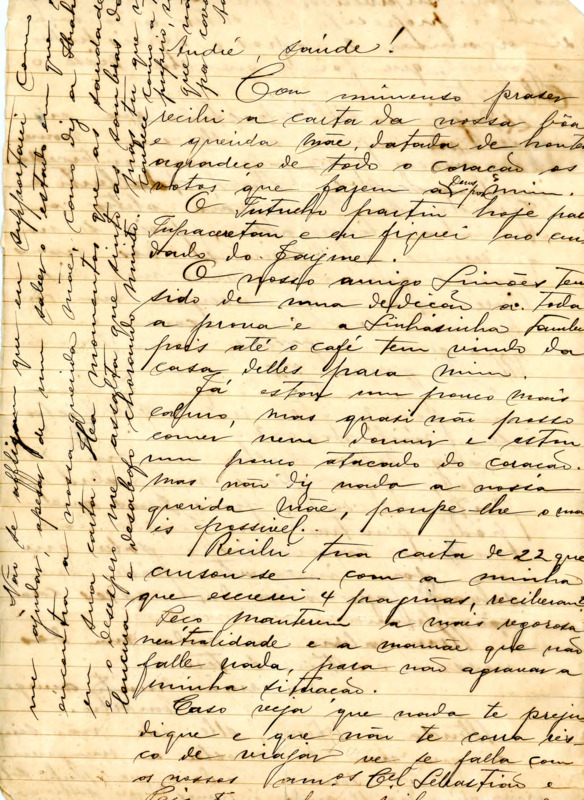 André, saúde!
Com immenso praser
recibi a carta da nossa bôa
e querida Mãe, datada de hontem
agradeço de todo o coração os
votos que fazem a Deus por mim.
O Tutucho partiu hoje pa
Tupaceretan e eu fiquei ao cui
dado do Jayme.
O nosso amigo Simões tem
sido de uma dedicção a toda
a prova e a Sinhásinha tambem
pois até o café tem vindo da
casa delles para mim
Já estou um pouco mais
calmo, mas quasi não posso
comer nem dormir e estou
um pouco atacado do coração.
mas não diz nada a nossa
querida Mãe, poupe-lhe o ma
is possivel.
Recibi tua carta de 22 que
cruson-se com a minha
que escrevi 4 paginas, receberam
Peço manterem a mais regorosa
neutralidade e a mamãe que não
falle nada, para não agravar a
minha situação.
Caso veja que nada te preju
dique e que não te corra ris
co de viajar ve se falla com
os nossos amos Cel Sebastião e
Não se affligam que eu supportarei com
me ajudar, apesar de um saber o estado em que
encontra a nossa querida mãe, como diz a
em sua carta. Ha momentos que as saudades
e o desespero me assalta que sinto as sombras da
loucura e desabafo chorando muito.
mas tu que
conhece como a